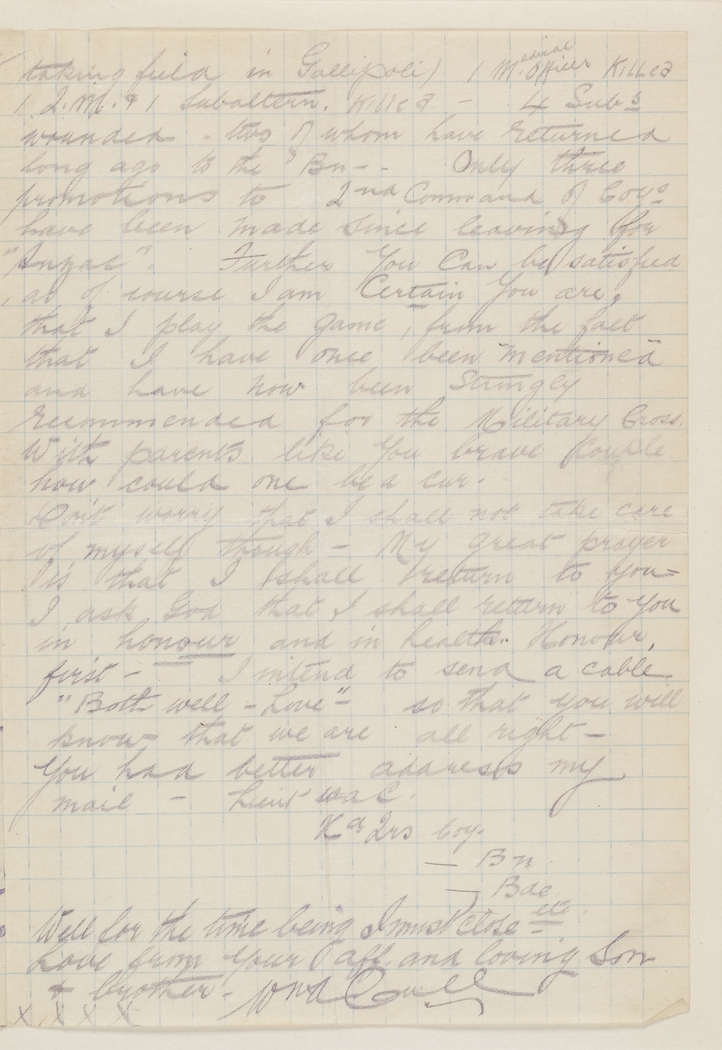 taking field in Gallipoli) 1 Medical Officer Killed
1 Q.M. & 1 Subaltern. Killed - 4 Subs
wounded - two of whom have returned
long ago to the Bn - . Only three
promotions to 2nd Command of Coys
have been made since leaving
"Anzac". Further You Can be satisfied
, as of course I am Certain You are,
that I play the game, from the fact
that I have once been "mentioned"
and have now been Strongly
recommended for the Military Cross.
With parents like You brave Couple
how could one be a cur.
Don't worry that I shall not take care
of myself though - My great prayer
is that I shall return to you -
I ask God that I shall return to you
in honour and in health. Honour,
first - I intend to send a cable
"Both well - Love" - so that you will
know that we are all right -
You had better address my
mail - Lieut W.A.C.
Hd Qrs Coy.
— Bn.
— Bde
etc
Well for the time being I must close -
Love from Your aff. and loving Son
& brother - Cull
X X X X